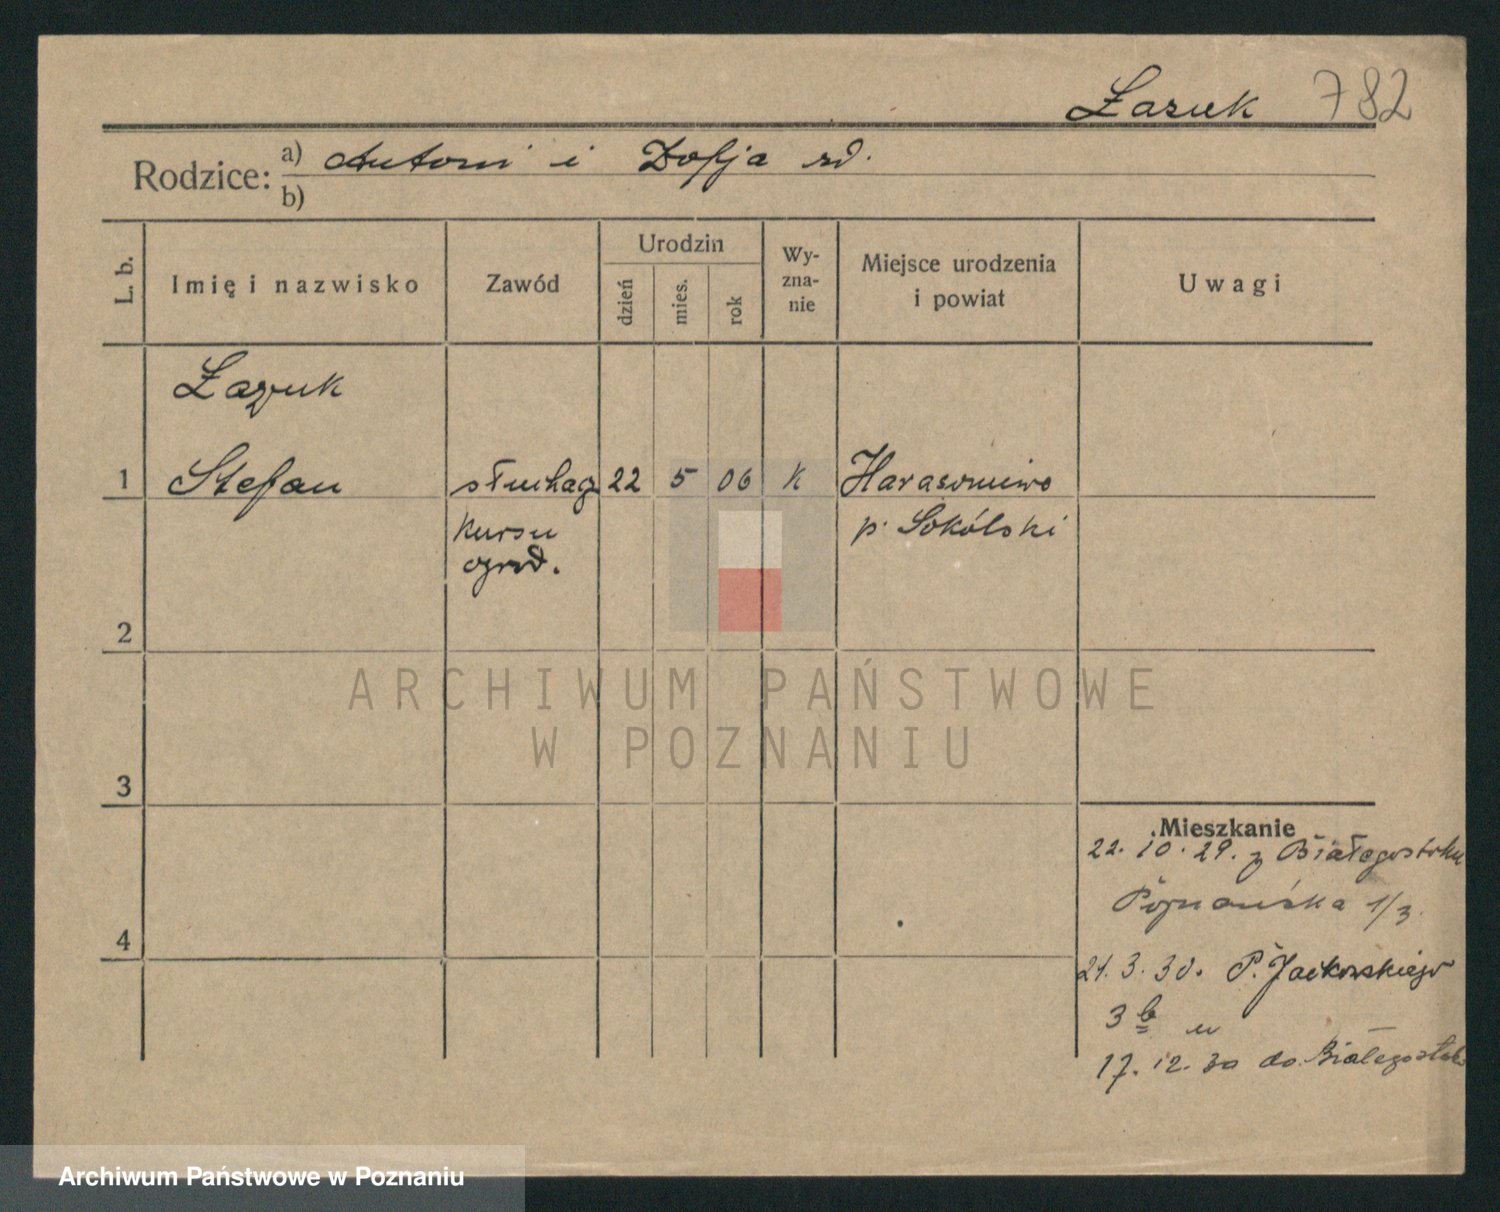 Łazuk 782
Rodzice: a) Antoni i Zofja zd.
b)
L. b. Imię i nazwisko Zawód Urodzin dzień mies. rok Wyznanie Miejsce urodzenia i powiat Uwagi
Łazuk
1 Stefan słuchacz 22 5 06 K Harasimowo
kursu p. Sokólski
ogrod.
2
ARCHIWUM PAŃSTWOWE
W POZNANIU
3
Mieszkanie
22. 10. 29. z Białegostoku
Poznańska 1/3.
4
21. 3. 30. P. Jackowskiego
3 b u
17. 12. 30 do Białegostoku
Archiwum Państwowe w Poznaniu